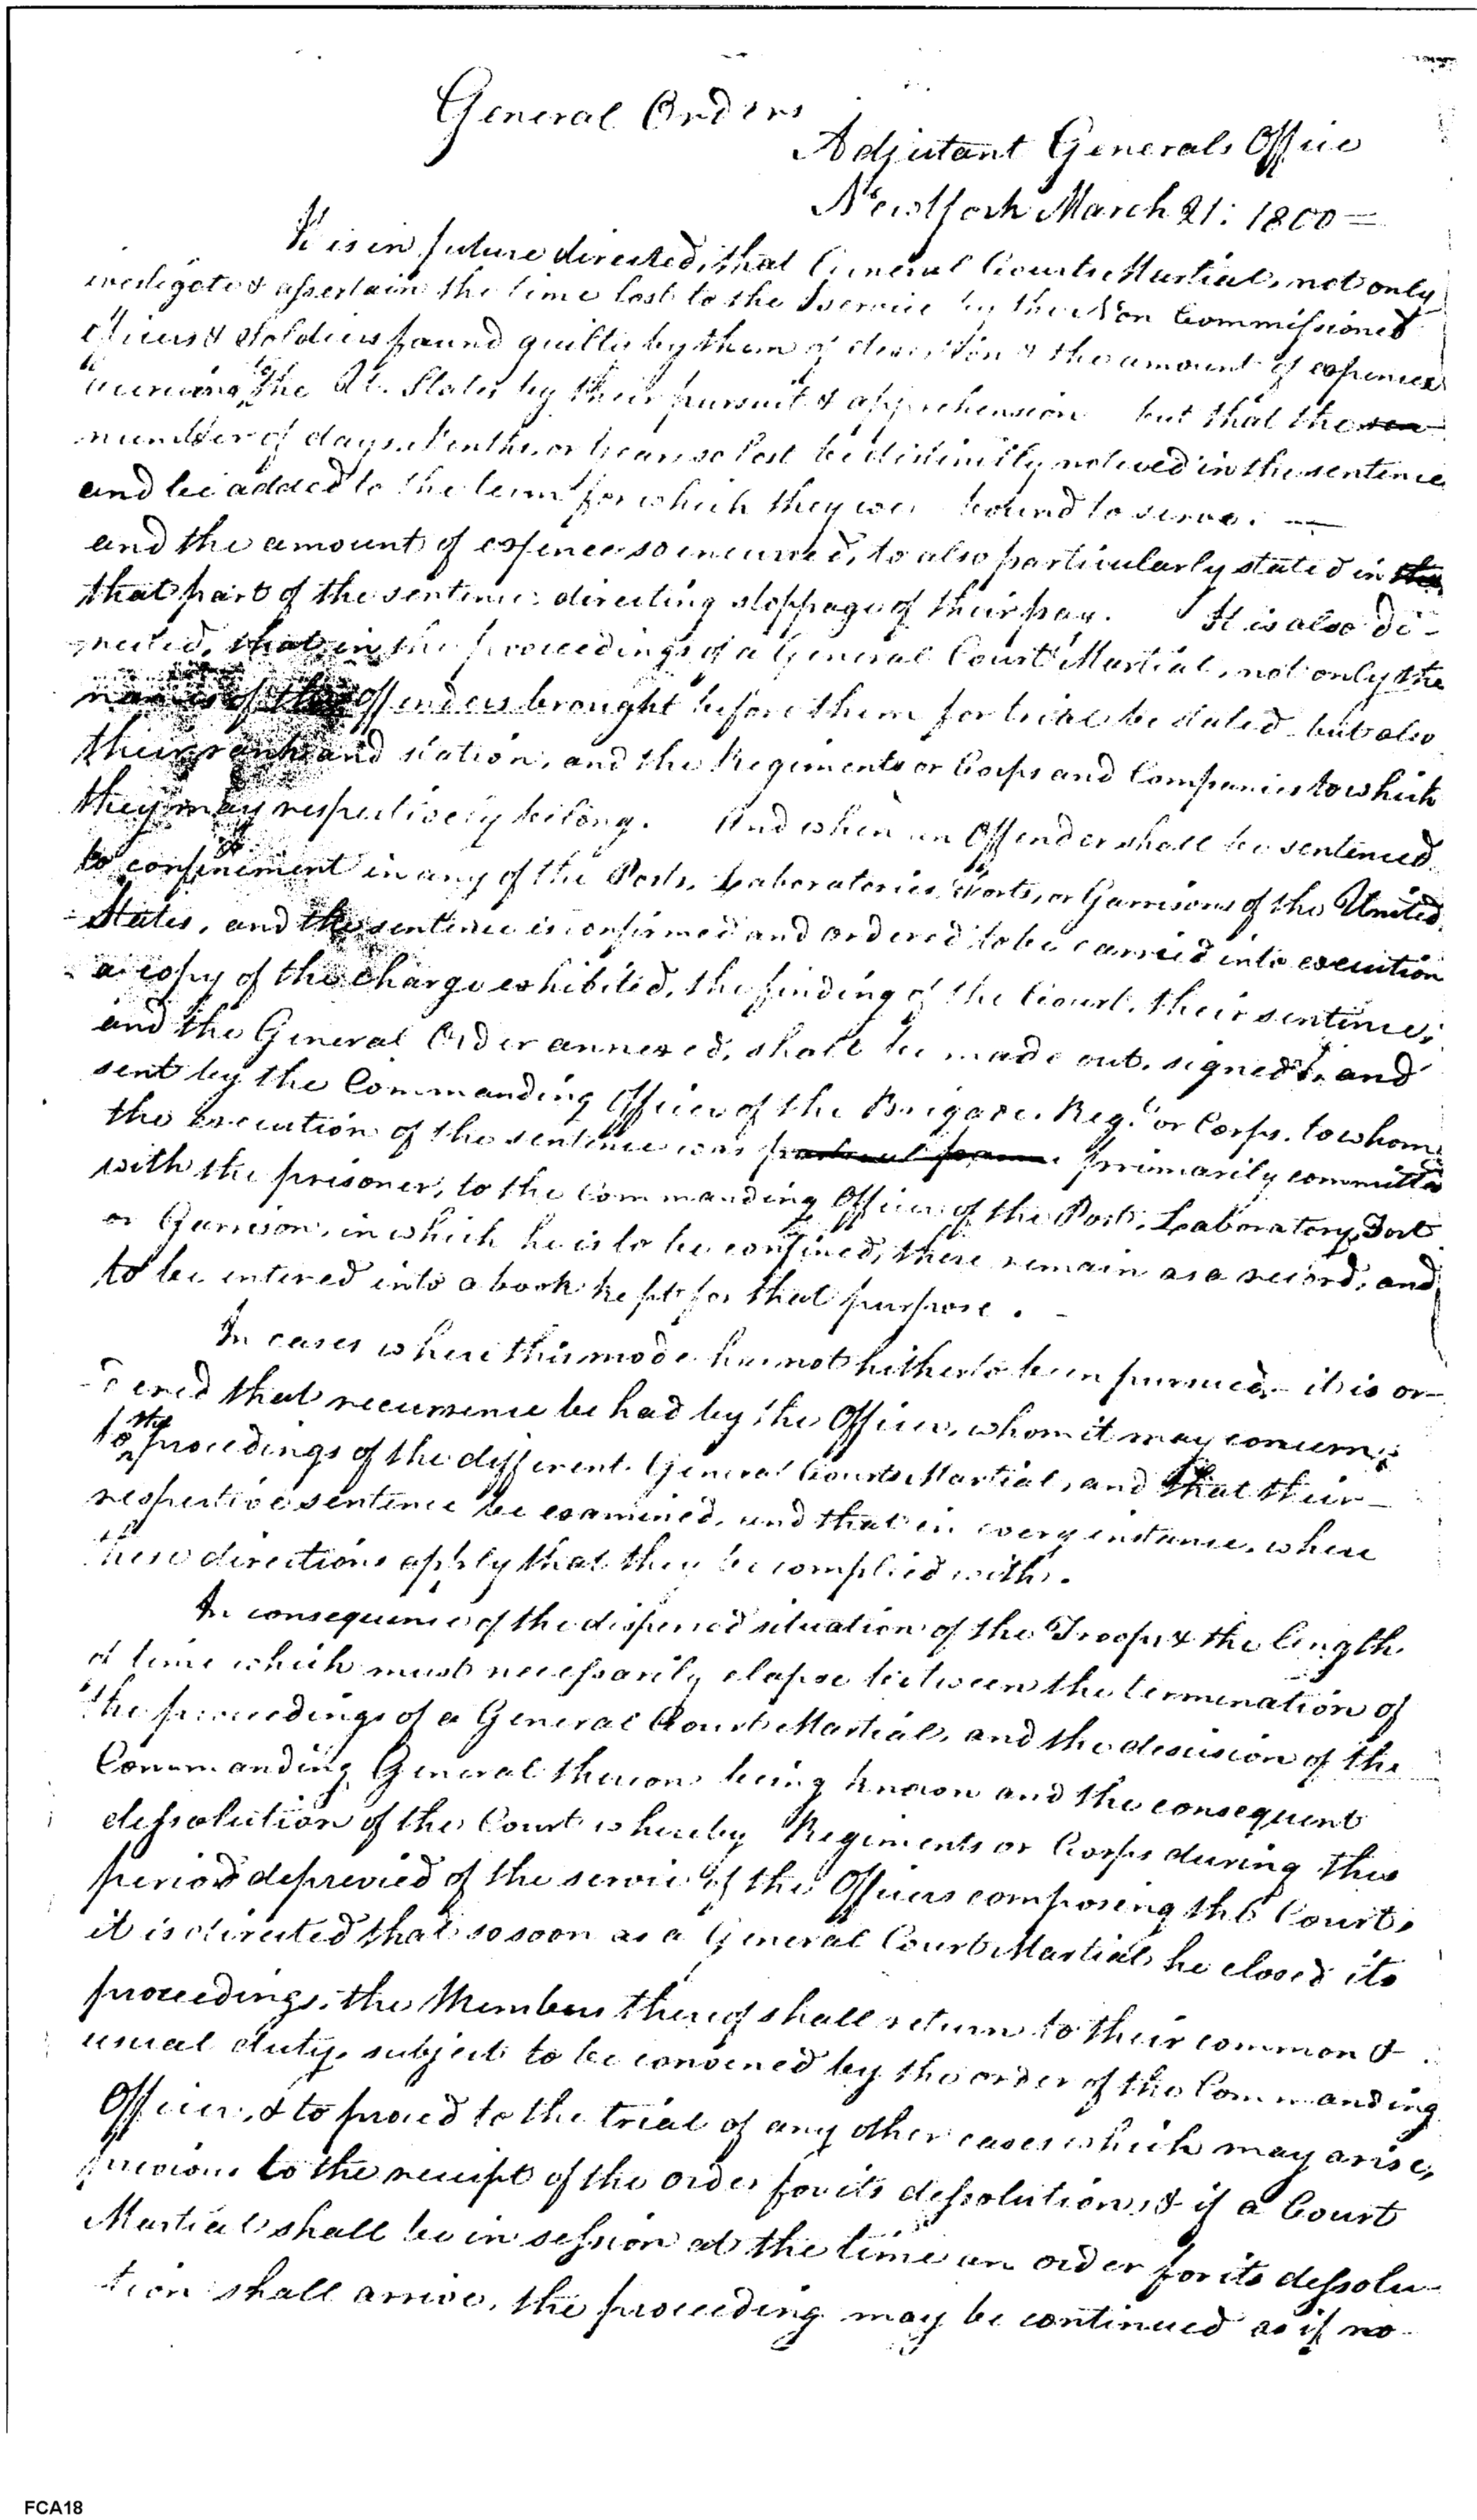 General Orders
Adjutant Generals Office
New York March 21: 1800 =
It is in future directed, that General Courts Martial, not only
investigate & assertain the time lost to the service by the Non Commissioned
officers & Soldiers found guilty by them of desertion & the amount of expences
to the Ut. States by their pursuit & apprehension but that the
number of days, Months, or years so lost be distinctly noticed in the sentence
and be added to the term for which they were bound to serve. —
and the amount of expences so incurred, to also particularly stated in the
that part of the sentence directing stoppage of their pay. It is also di-
rected, that in the proceedings of a General Court Martial, not only the
names of the Offenders brought before them for trial be stated but also
their rank and station, and the Regiments or Corps and Companies to which
they may respectively belong. And when an Offender shall be sentenced
to confinement in any of the Posts, Laboratories, Forts, or Garrisons of the United
States, and the sentence is confirmed and ordered to be carried into execution
a copy of the charge exhibited, the finding of the Court, their sentence,
and the General Order annexed, shall be made out, signed & and
sent by the Commanding Officer of the Brigade, Regt. or Corps, to whom
the execution of the sentence was primarily committed
with the prisoner, to the Commanding Officer of the Post, Laboratory, Fort
or Garrison, in which he is to be confined, there remain as a record, and
to be entered into a book kept for that purpose. -
In cases where this mode has not hitherto been pursued, it is or-
-dered that recurrence be had by the Officers, whom it may concern,
to the proceedings of the different General Courts Martial, and that their —
respective sentence be examined, and that in every instance, where
these directions apply that they be complied with.
In consequence of the dispersed situation of the Troops & the length
of time which must necessarily elapse between the termination of
the proceedings of a General Court Martial, and the descision of the
Commanding General thereon being known and the consequent
dessolution of the Court whereby Regiments or Corps during this
period deprevied of the service of the Officers composing the Court,
it is directed that so soon as a General Court Martial he closed its
proceedings, the Members thereof shall return to their common &
usual duty, subject to be convened by the order of the Commanding
Officer, & to proced to the trial of any other cases which may arise,
previous to the receipt of the order for its dessolution, & if a Court
Martial shall be in session at the time an order for its dessolu-
tion shall arrive, the proceeding may be continued as if no
FCA18